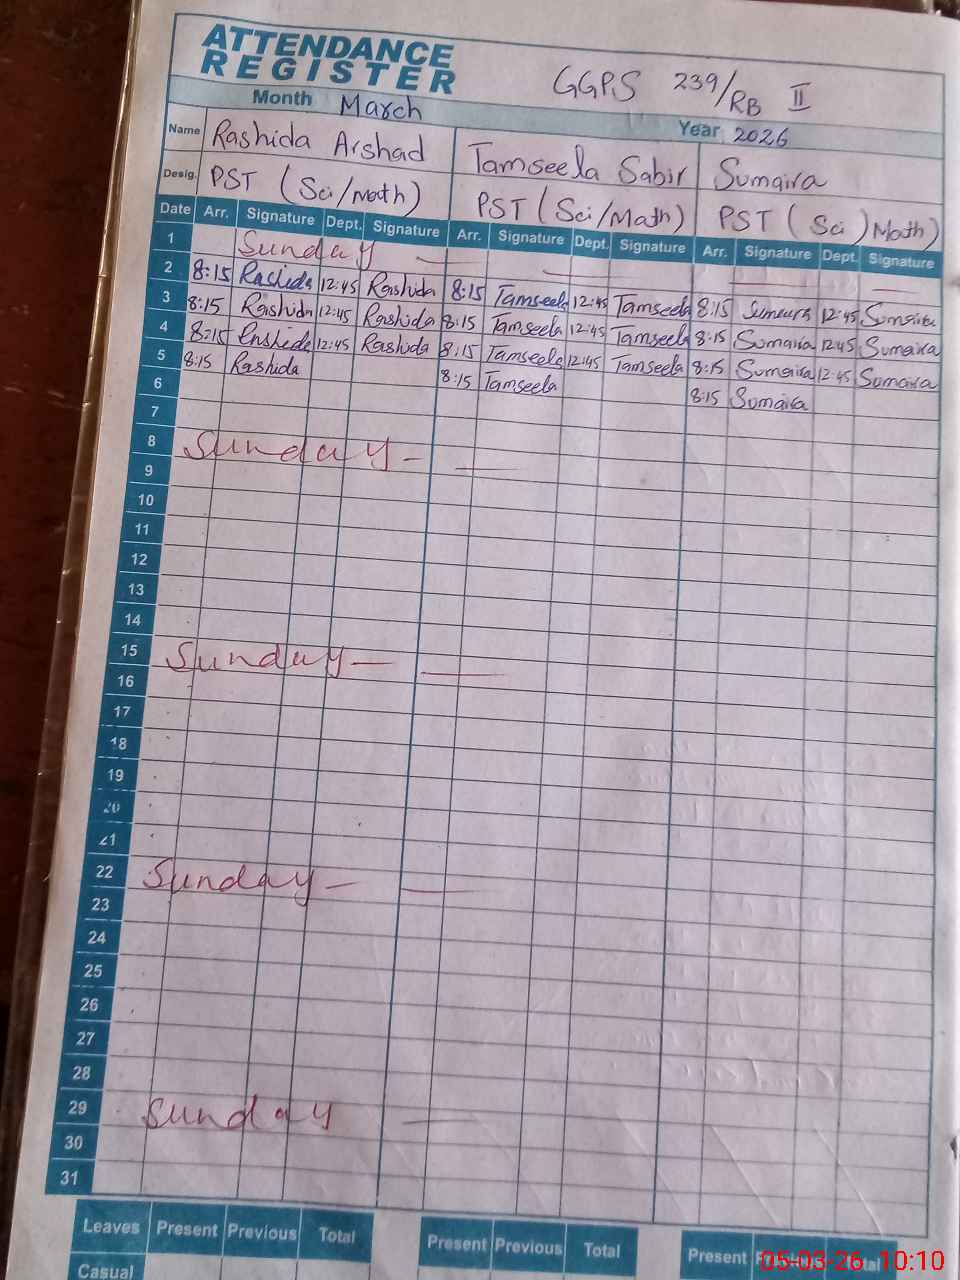 ATTENDANCE
REGISTER
GGPS 239/RB II
Month March
Year 2026
Name Rashida Arshad Tamseela Sabir Sumaira
Desig. PST (Sci/Math) PST (Sci/Math) PST (Sci) Math)
Date Arr. Signature Dept. Signature Arr. Signature Dept. Signature Arr. Signature Dept. Signature
1 Sunday
2 8:15 Rashida 12:45 Rashida 8:15 Tamseela 12:45 Tamseela 8:15 Sumaira 12:45 Sumaira
3 8:15 Rashida 12:45 Rashida 8:15 Tamseela 12:45 Tamseela 8:15 Sumaira 12:45 Sumaira
4 8:15 Rashida 12:45 Rashida 8:15 Tamseela 12:45 Tamseela 8:15 Sumaira 12:45 Sumaira
5 8:15 Rashida 8:15 Tamseela 8:15 Sumaira
6
7
8 Sunday
9
10
11
12
13
14
15 Sunday
16
17
18
19
20
21
22 Sunday
23
24
25
26
27
28
29 Sunday
30
31
Leaves Present Previous Total Present Previous Total Present
Casual
05-03-26 10:10